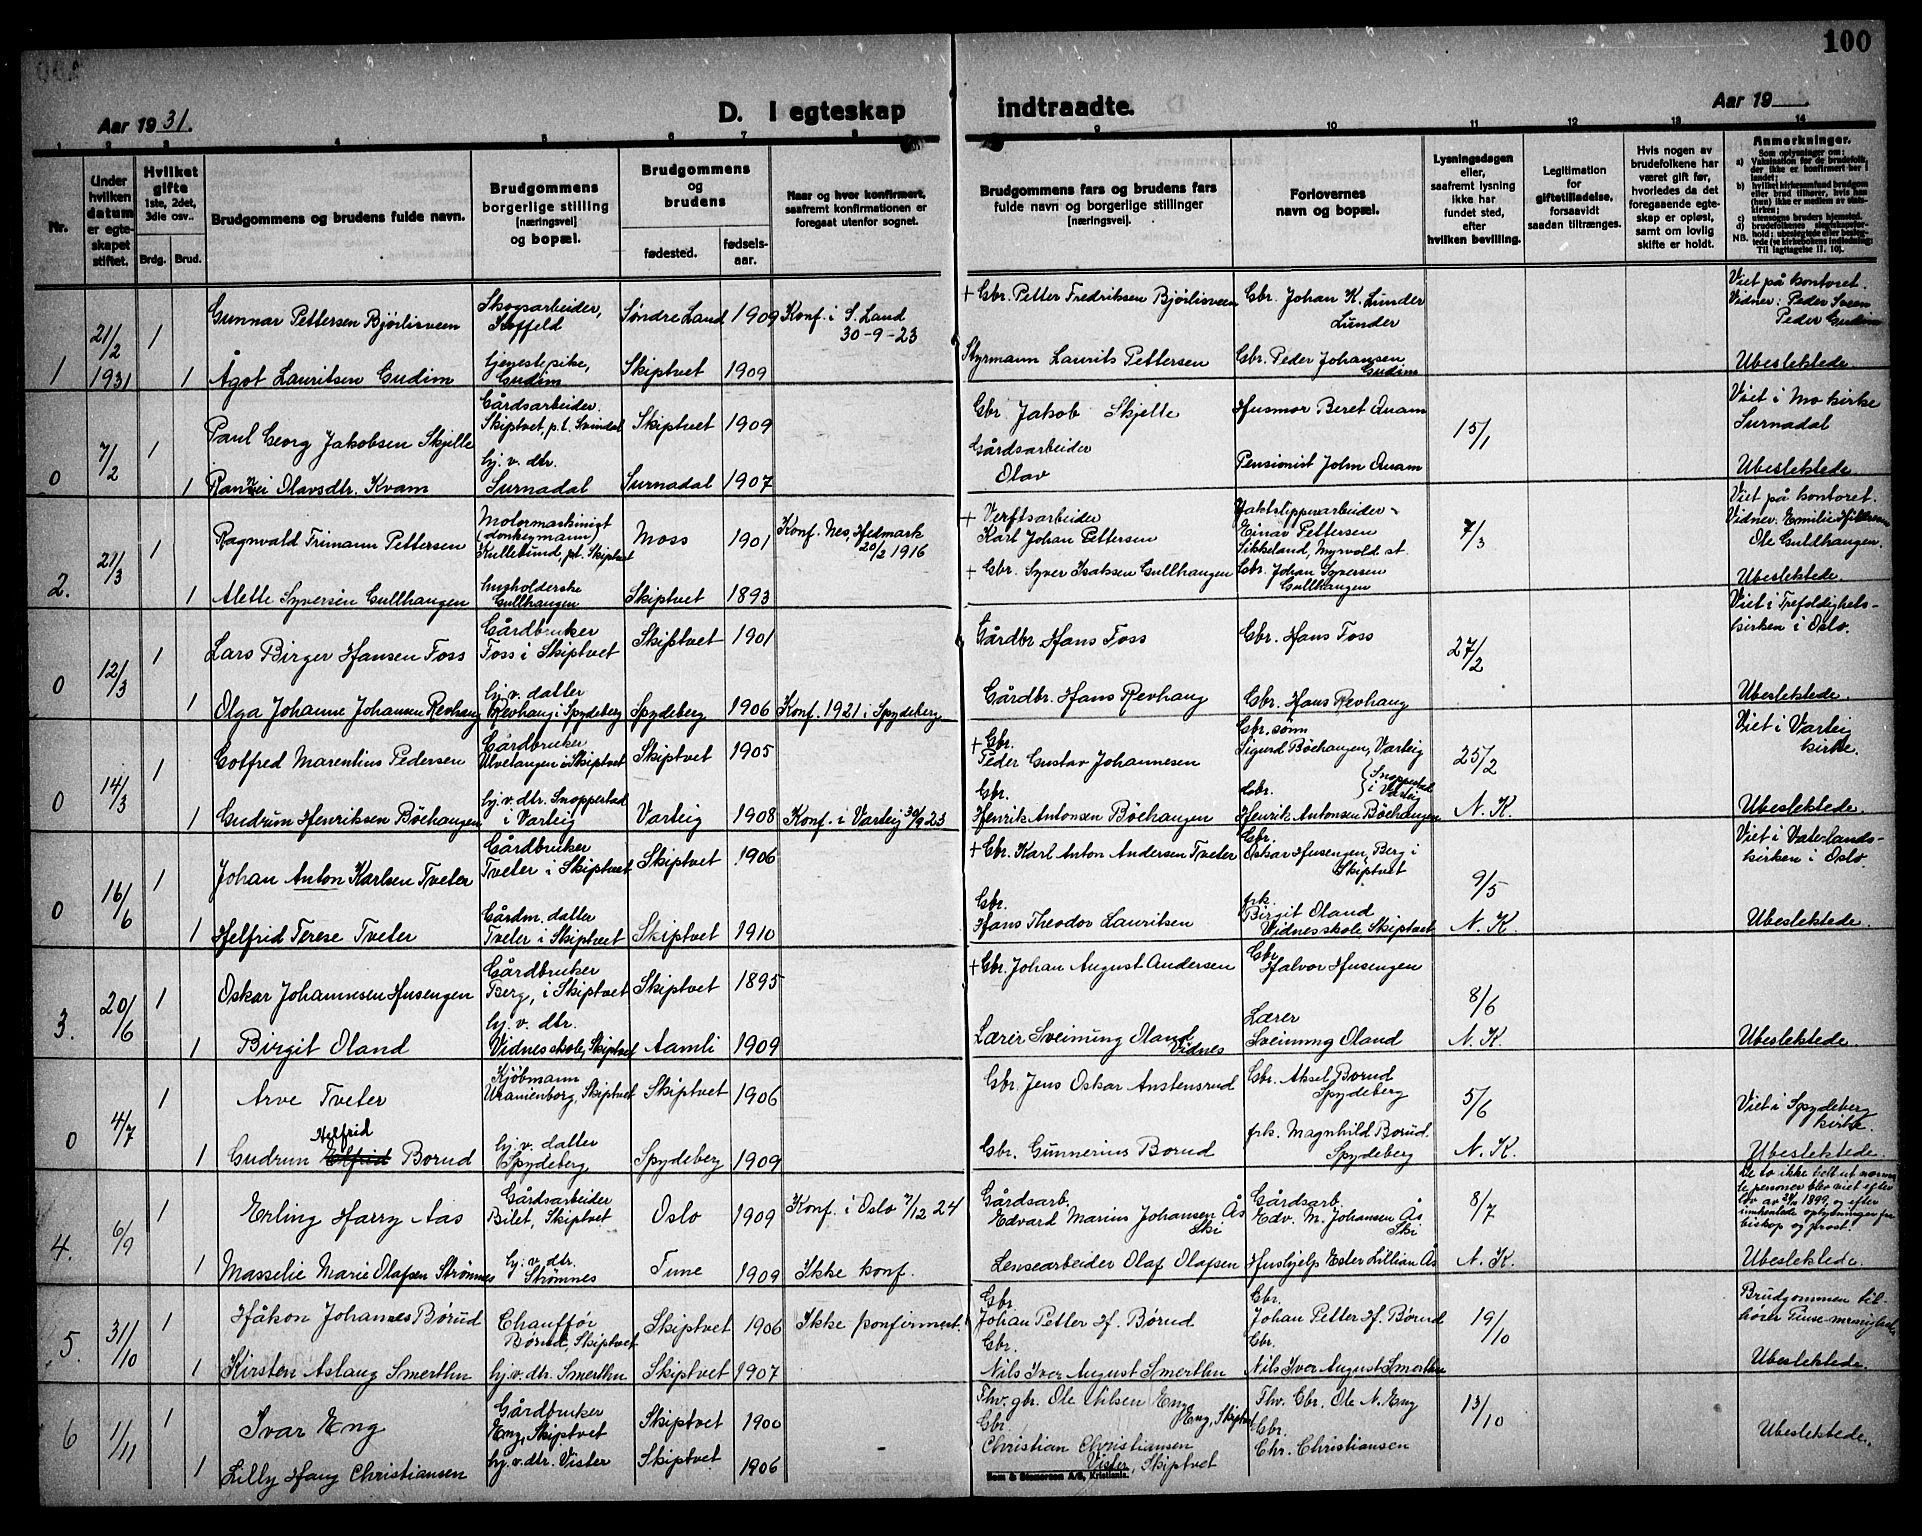 100
Aar 1931.
D. I egteskap
indtraadte.
Aar 19
1 2 3 4 5 6 7 8 9 10 11 12 13 14
Nr.
Under hvilken datum er egteskapet stiftet.
Hvilket gifte 1ste, 2det, 3die osv.
Brdg. Brud.
Brudgommens og brudens fulde navn.
Brudgommens borgerlige stilling [næringsvei] og bopæl.
Brudgommens og brudens
fødested.
fødselsaar.
Naar og hvor konfirmert, saafremt konfirmationen er foregaat utenfor sognet.
Brudgommens fars og brudens fars fulde navn og borgerlige stillinger [næringsvei]
Forlovernes navn og bopæl.
Lysningsdagen eller, saafremt lysning ikke har fundet sted, efter hvilken bevilling.
Legitimation for giftetilladelse, forsaavidt saadan tiltrænges.
Hvis nogen av brudefolkene har været gift før, hvorledes da det foregaaende egteskap er opløst, samt om lovlig skifte er holdt.
Anmerkninger.
Som oplysninger om:
a) Vaksination for de brudefolk, der ikke er konfirmert her i landet;
b) hvilket kirkesamfund brudgom eller brud tilhører, hvis han (hun) ikke er medlem av statskirken;
c) utensogns bruders hjemsted.
d) brudefolkenes slegtskapsforhold: ubeslegtede eller beslegtede (se kirkebokens indledning: Til Iagttagelse II. 10).
NB.
1 21/2 1931
1 Gunnar Pettersen Bjørlisveen Skogsarbeider, Hoffeld Søndre Land 1909 Konf. i S. Land 30-9-23 + Gbr. Petter Fredriksen Bjørlisveen Gbr. Johan K. Lunder Lunder Viet på kontoret. Vidner: Peder Sveen Peder Gudim
1 Ågot Lauritsen Gudim tjenestepike, Gudim Skiptvet 1909 Styrmann Laurits Pettersen Gbr. Peder Johansen Gudim Ubeslektede
0 7/2
1 Paul Georg Jakobsen Skjelle Gårdsarbeider. Skiptvet, p.t. Svindal Skiptvet 1909 Gbr. Jakob Skjelle Husmor Beret Quam 15/1 Viet i Mo kirke Surnadal
1 Olavsdtr. Kvam hj. v. dtr. Surnadal Surnadal 1907 Gårdsarbeider Olav Pensionist John Quam Ubeslektede
2. 21/3
1 Ragnvald Trimann Pettersen Motormaskinist (donkeymann) Kullebund, p.t. Skiptvet Moss 1901 Konf. Nes, Hedmark 20/2 1916 + Verftsarbeider Karl Johan Pettersen Einar Pettersen Sikkeland, Myrvold st. 7/3 Viet på kontoret. Vidner. Emilie Ole Gullhaugen.
1 Alette Syversen Gullhaugen husholderske Gullhaugen Skiptvet 1893 + Gbr. Syver Isaksen Gullhaugen Gbr. Johan Syversen Gullhaugen Ubeslektede
0 12/3
1 Lars Birger Hansen Foss Gårdbruker Foss i Skiptvet Skiptvet 1901 Gårdbr Hans Foss Gbr. Hans Foss 27/2 Viet i Trefoldighetskirken i Oslo.
1 Olga Johanne Johansen Revhaug hj. v. datter Revhaug i Spydeberg Spydeberg 1906 Konf. 1921 i Spydeberg Gårdbr. Hans Revhaug Gbr. Hans Revhaug Ubeslektede
0 14/3
1 Gotfred Marentius Pedersen Gårdbruker Ulvetangen i Skiptvet Skiptvet 1905 + Gbr. Peder Gustav Johannesen Gbr. sønn Sigurd Bøehaugen, Varteig 25/2 Viet i Varteig kirke.
1 Gudrun Henriksen Bøehaugen hj. v. dtr. Snoppestad i Varteig Varteig 1908 Konf. i Varteig 30/9 23 Gbr. Henrik Antonsen Bøehaugen Gbr. Henrik Antonsen Bøehaugen (Snoppestad i Varteig N. K. Ubeslektede
0 16/6
1 Johan Anton Karlsen Tveter Gårdbruker Tveter i Skiptvet Skiptvet 1906 + Gbr. Karl Anton Andersen Tveter Gbr. Oskar Husengen, Berg i Skiptvet 9/5 Viet i Vaterlandskirken i Oslo.
1 Helfrid Terese Tveter Gårdm. datter Tveter i Skiptvet Skiptvet 1910 Gbr. Hans Theodor Lauritsen frk. Birgit Oland Vidnes skole, Skiptvet N. K. Ubeslektede
3. 20/6
1 Oskar Johannesen Husengen Gårdbruker Berg, i Skiptvet Skiptvet 1895 + Gbr. Johan August Andersen Gbr. Halvor Husengen 8/6
1 Birgit Oland hj. v. dtr. Vidnes skole, Skiptvet Aamli 1909 Lærer Sveinung Oland Vidnes Lærer Sveinung Oland N. K. Ubeslektede
0 4/7
1 Arve Tveter Kjøbmann Uranienborg, Skiptvet Skiptvet 1906 Gbr. Jens Oskar Anstensrud Gbr. Aksel Borud Spydeberg 5/6 Viet i Spydeberg kirke.
1 Gudrun Helfrid Elfrid Borud hj. v. datter Spydeberg Spydeberg 1909 Gbr. Gunnerius Borud frk. Magnhild Borud. Spydeberg N. K. Ubeslektede
4. 6/9
1 Erling Harry Aas Gårdsarbeider Bilet, Skiptvet Oslo 1909 Konf. i Oslo 7/12 24 Gårdsarb. Edvard Marius Johansen Ås Ski Gårdsarb. Edv. M. Johansen Ås Ski 8/7 De to ikke helt ut personer blev viet efter lov av 1899, og efter innhentede oplysninger fra biskop og prost.
1 Masselie Marie Olafsen Strømnes hj. v. dtr. Strømnes Tune 1909 Ikke konf. Lensearbeider Olaf Olafsen Hushjelp Ester Lillian Ås N. K. Ubeslektede.
5. 31/10
1 Håkon Johannes Børud Chauffør Børud, Skiptvet Skiptvet 1906 Ikke konfirmert. Gbr. Johan Petter H. Børud Gbr. Johan Petter H. Børud 19/10 Brudgommen tilhører
1 Kirsten Aslaug Smerthu hj. v. dtr. Smerthu Skiptvet 1907 Gbr. Nils Iver August Smerthu Gbr. Nils Iver August Smerthu Ubeslektede.
6 1/11
1 Ivar Eng Gårdbruker Eng, Skiptvet Skiptvet 1900 Fhv. gbr. Ole Nilsen Eng Eng, Skiptvet Fhv. Gbr. Ole N. Eng 13/10
1 Lilly Haug Christiansen hj. v. dtr. Vister Skiptvet 1906 Gbr. Christian Christiansen Vister, Skiptvet Gbr. Chr. Christiansen Ubeslektede.